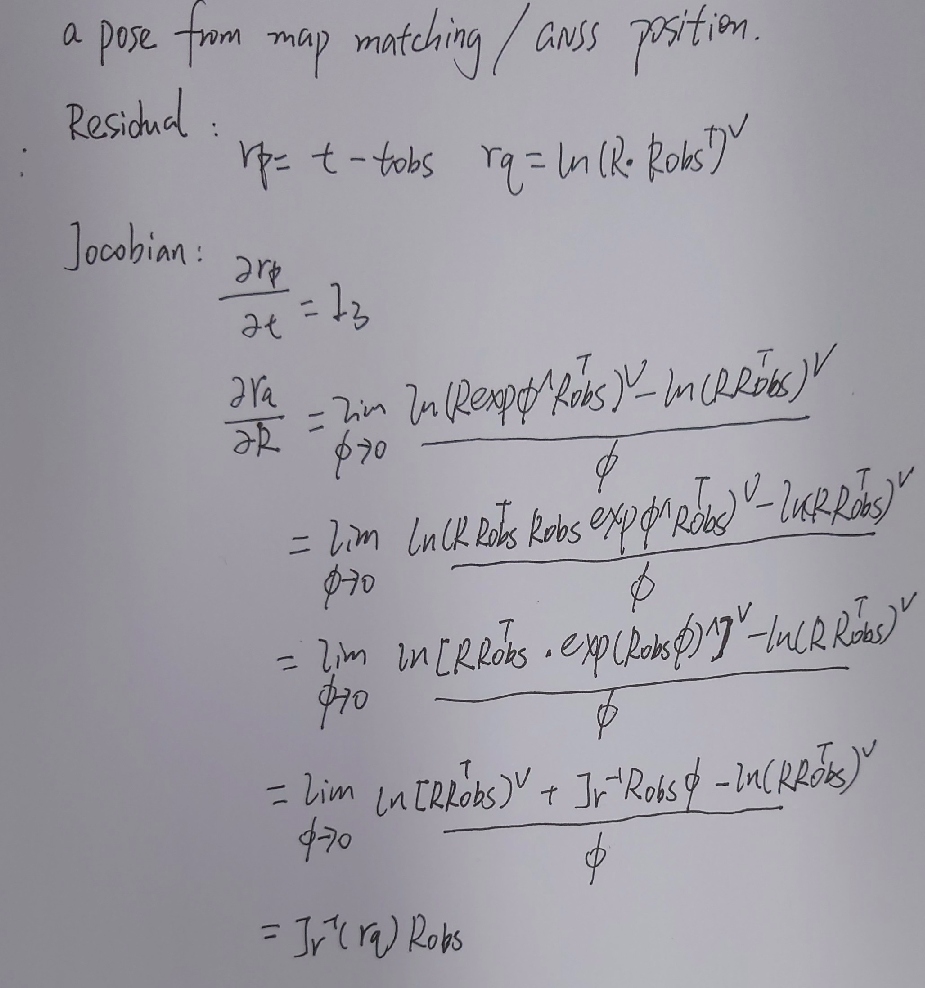 a pose from map matching / GNSS position.
Residual :
rp = t - tobs rq = ln(R · Robsᵀ)ᵛ
Jocobian :
∂rp/∂t = I₃
∂rq/∂R = lim ϕ→0 [ln(R expϕ^ Robsᵀ)ᵛ - ln(RRobsᵀ)ᵛ] / ϕ
= lim ϕ→0 [ln(R Robsᵀ Robs expϕ^ Robsᵀ)ᵛ - ln(RRobsᵀ)ᵛ] / ϕ
= lim ϕ→0 [ln[RRobsᵀ · exp(Robsϕ)^]ᵛ - ln(RRobsᵀ)ᵛ] / ϕ
= lim ϕ→0 [ln[RRobsᵀ)ᵛ + Jr⁻¹Robsϕ - ln(RRobsᵀ)ᵛ] / ϕ
= Jr⁻¹(rq) Robs